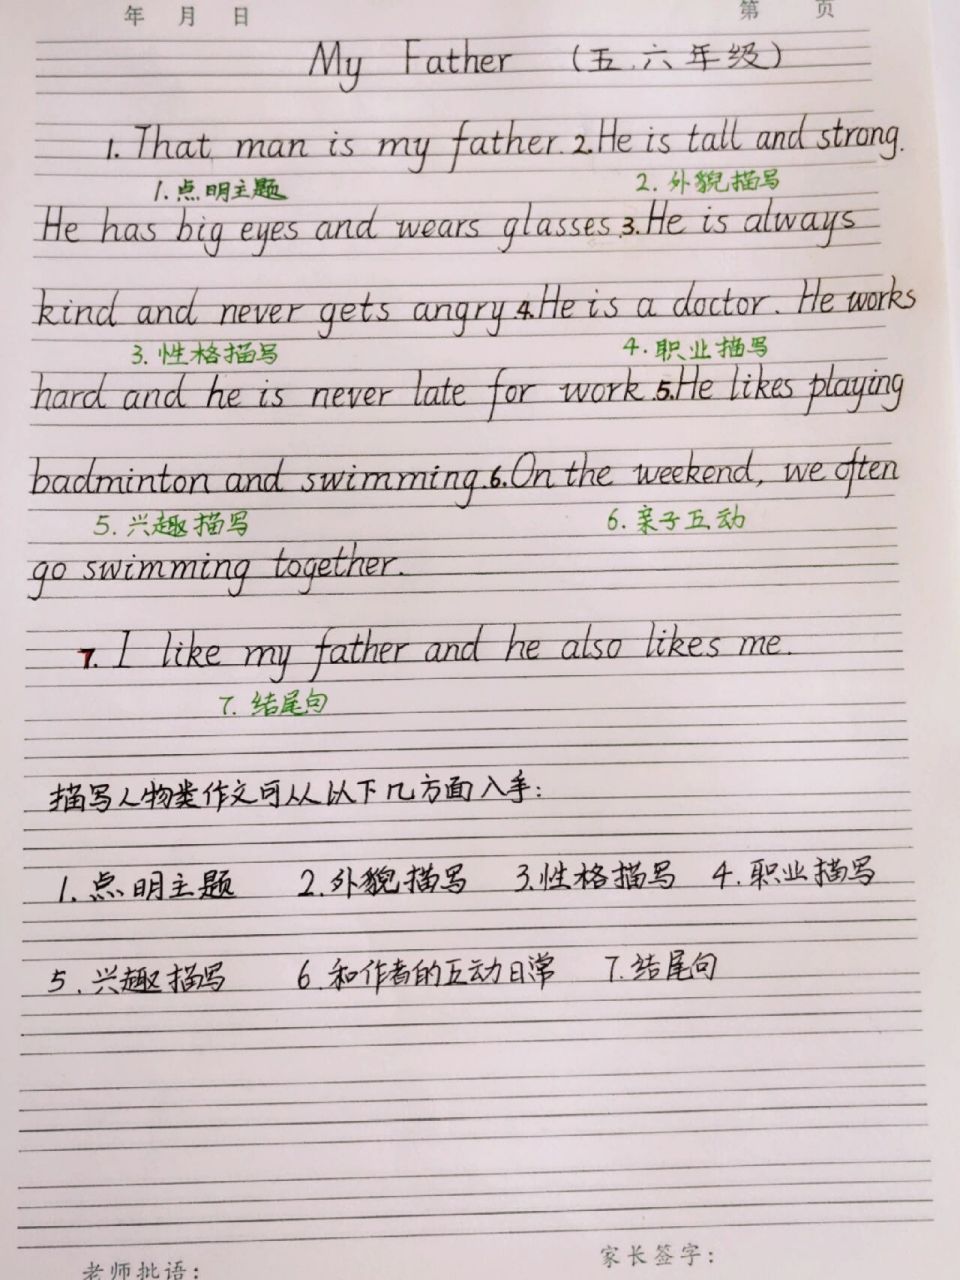 年 月 日 第 页
My Father （五.六年级）
1. That man is my father. 2. He is tall and strong.
1.点明主题 2.外貌描写
He has big eyes and wears glasses. 3. He is always
kind and never gets angry. 4. He is a doctor. He works
3.性格描写 4.职业描写
hard and he is never late for work. 5. He likes playing
badminton and swimming. 6. On the weekend, we often
5.兴趣描写 6.亲子互动
go swimming together.
7. I like my father and he also likes me.
7.结尾句
描写人物类作文可从以下几方面入手:
1.点明主题 2.外貌描写 3.性格描写 4.职业描写
5.兴趣描写 6.和作者的互动日常 7.结尾句
老师批语: 家长签字: